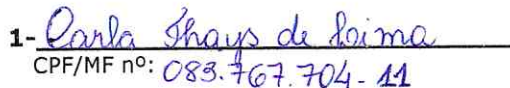 1- Carla Thays de Lima
CPF/MF nº: 083.767.704-11